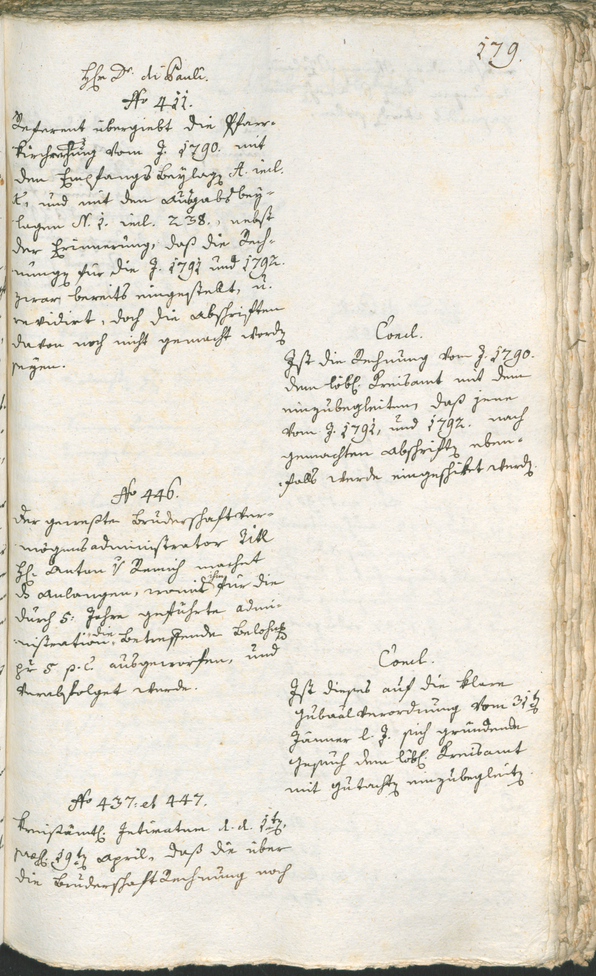 179.
Hh: Dr. di Pauli.
No 411.
Referent übergiebt die Pfarr-
kirchrechnung vom J. 1790. mit
den Empfangs Beylagen A. incl.
und mit den Ausgabsbey-
lagen N. 1. incl. 238., nebst
der Erinnerung, daß die Rech-
nungen für die J. 1791 und 1792.
zwar bereits eingestellt, u.
revidirt, doch die Abschriften
davon noch nicht gemacht worden
seyen.
Concl.
Ist die Rechnung vom J. 1790.
dem löbl. Kreisamt mit dem
einzubegleiten, daß jene
vom J. 1791, und 1792. nach
gemachten Abschriften eben-
falls werde eingeschiket werden.
No 446.
Der geweßte Bruderschaftsver-
mögensadministrator Titl
Hh: Anton v. Remich machet
das Anlangen, womit ihm für die
durch 5. Jahre geführte Admi-
nistration die betreffende Belohnung
pr 5 p. C. ausgeworfen, und
verabfolget werde.
Concl.
Ist dieses auf die klare
Gubernalverordnung vom 31ten
Jänner l. J. sich gründende
Gesuch dem löbl. Kreisamt
mit Gutachten einzubegleiten.
No 437. et 447.
Kreisämtl. Intimatum d. d. 1ten,
praes. 19ten April, daß die über
die Bruderschaft Rechnung noch